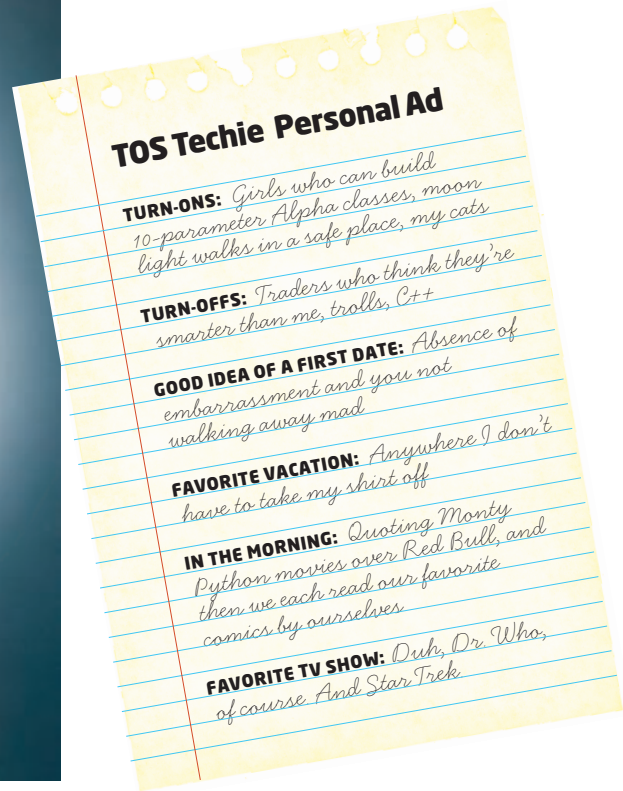 TOS Techie Personal Ad
TURN-ONS: Girls who can build
10-parameter Alpha classes, moon
light walks in a safe place, my cats
TURN-OFFS: Traders who think they're
smarter than me, trolls, C++
GOOD IDEA OF A FIRST DATE: Absence of
embarrassment and you not
walking away mad
FAVORITE VACATION: Anywhere I don't
have to take my shirt off
IN THE MORNING: Quoting Monty
Python movies over Red Bull, and
then we each read our favorite
comics by ourselves
FAVORITE TV SHOW: Duh, Dr. Who,
of course. And Star Trek